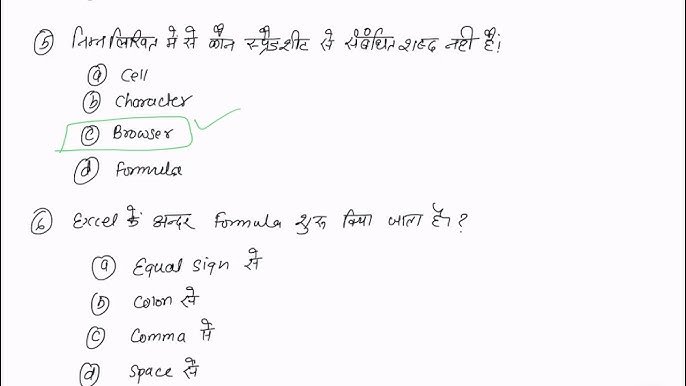 ⑤ निम्नलिखित में से कौन स्प्रेडशीट से संबंधित शब्द नहीं है!
ⓐ Cell
ⓑ Character
ⓒ Browser
ⓓ Formula
⑥ Excel के अन्दर Formula शुरू किया जाता है?
ⓐ Equal Sign से
ⓑ Colon से
ⓒ Comma से
ⓓ Space से